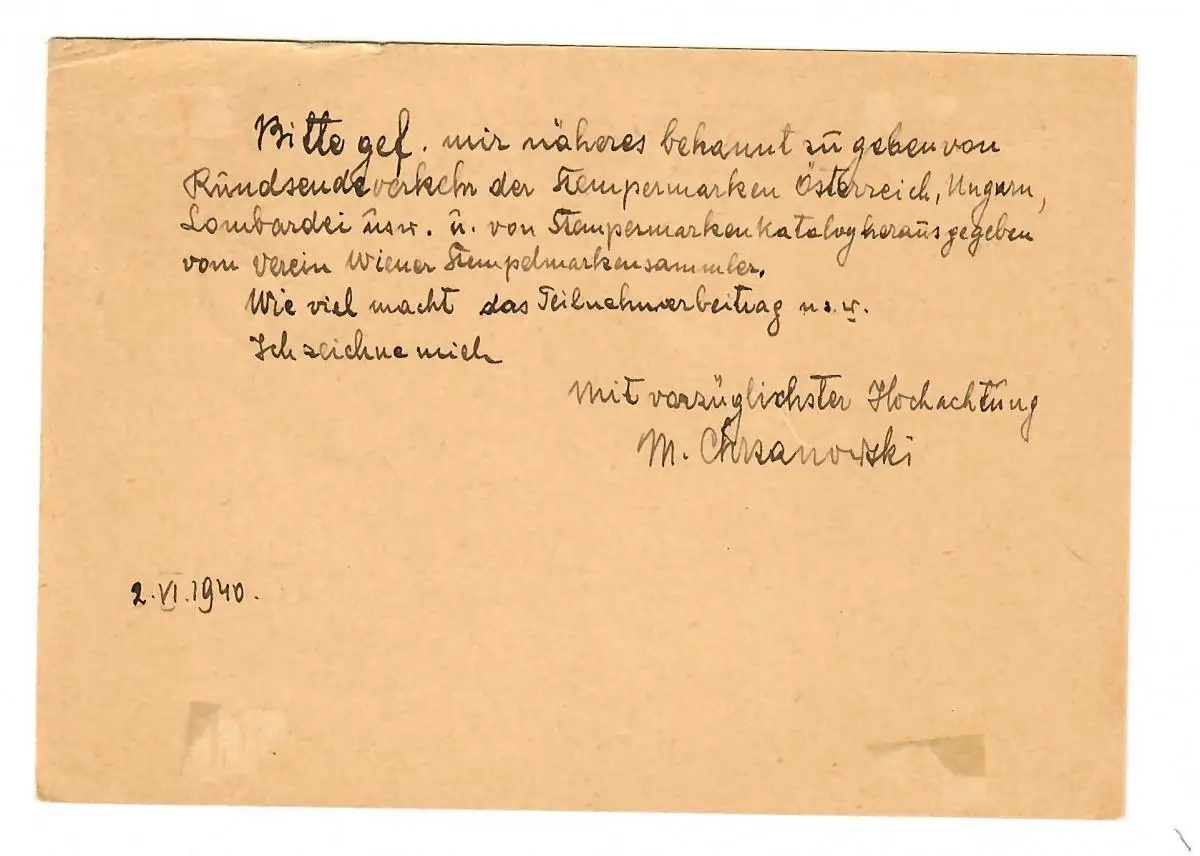 Bitte gef. mir näheres bekannt zu geben von
Rundsendeverkehr der Stempermarken Österreich, Ungarn,
Lombardei usw. u. von Stempermarkenkatalog herausgegeben
vom Verein Wiener Stempelmarkensammler.
Wie viel macht das Teilnehmerbeitrag u.s.w.
Ich zeichne mich
Mit vorzüglichster Hochachtung
M. Chrzanowski
2.VI.1940.